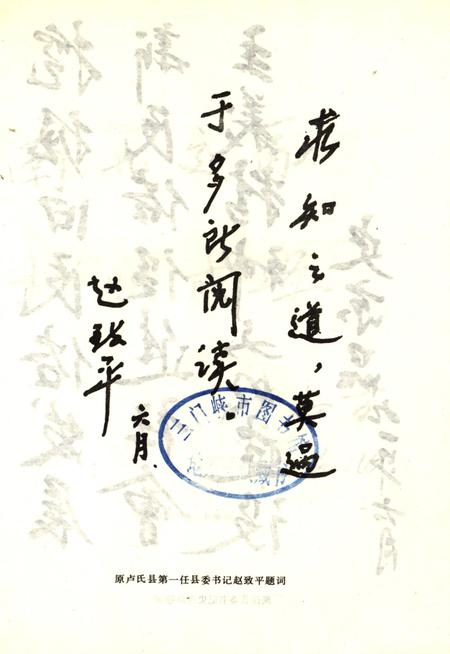 求知之道，莫过
于多所阅读。
赵致平
六月.
门峡市图书
藏
原卢氏县第一任县委书记赵致平题词